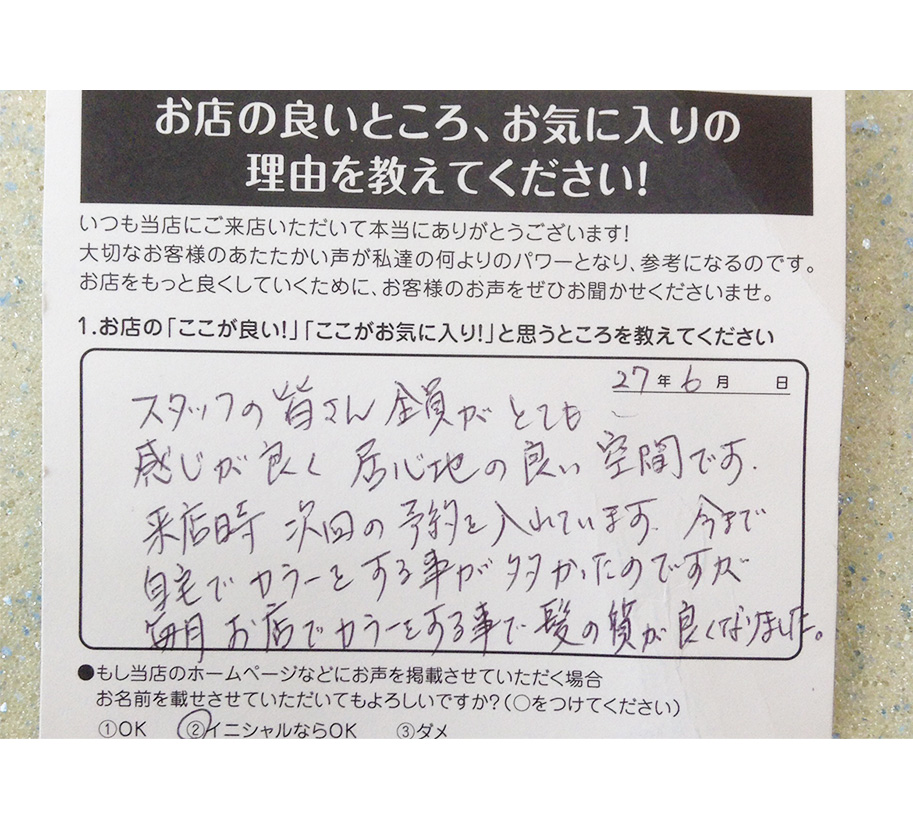 お店の良いところ、お気に入りの
理由を教えてください!
いつも当店にご来店いただいて本当にありがとうございます!
大切なお客様のあたたかい声が私達の何よりのパワーとなり、参考になるのです。
お店をもっと良くしていくために、お客様のお声をぜひお聞かせくださいませ。
1.お店の「ここが良い!」「ここがお気に入り!」と思うところを教えてください
27年6月 日
スタッフの皆さん全員がとても
感じが良く居心地の良い空間です.
来店時次回の予約を入れています.今まで
自宅でカラーをする事が多かったのですが
毎月お店でカラーをする事で髪の質が良くなりました。
●もし当店のホームページなどにお声を掲載させていただく場合
お名前を載せさせていただいてもよろしいですか?(○をつけてください)
①OK ②イニシャルならOK ③ダメ